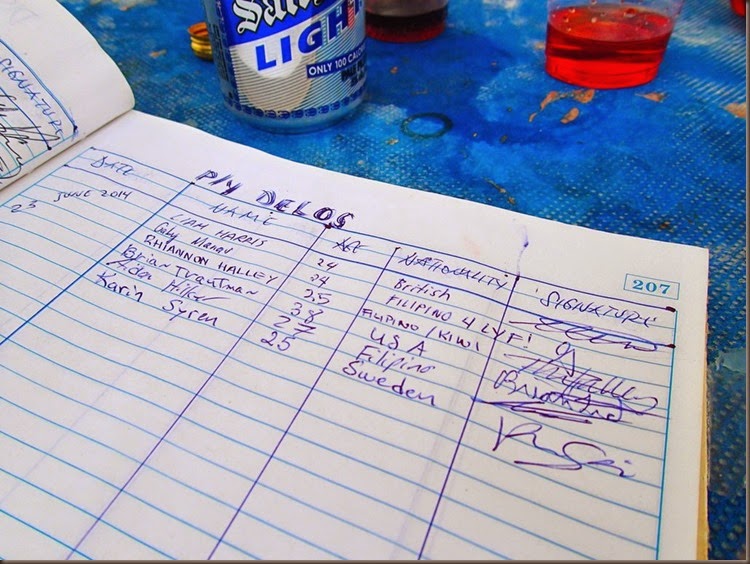 San
LIGHT
ONLY 100 CALORIES
SIGNATURE
P/Y DELOS
207
DATE NAME AGE NATIONALITY 'SIGNATURE'
23 JUNE 2014 LIAM HARRIS 24 British
Gaby 24 FILIPINO 4 LYF!
RHIANNON HALLEY 25 FILIPINO/KIWI
Brian Trautman 38 USA
27 Filipino
Karin Syren 25 Sweden